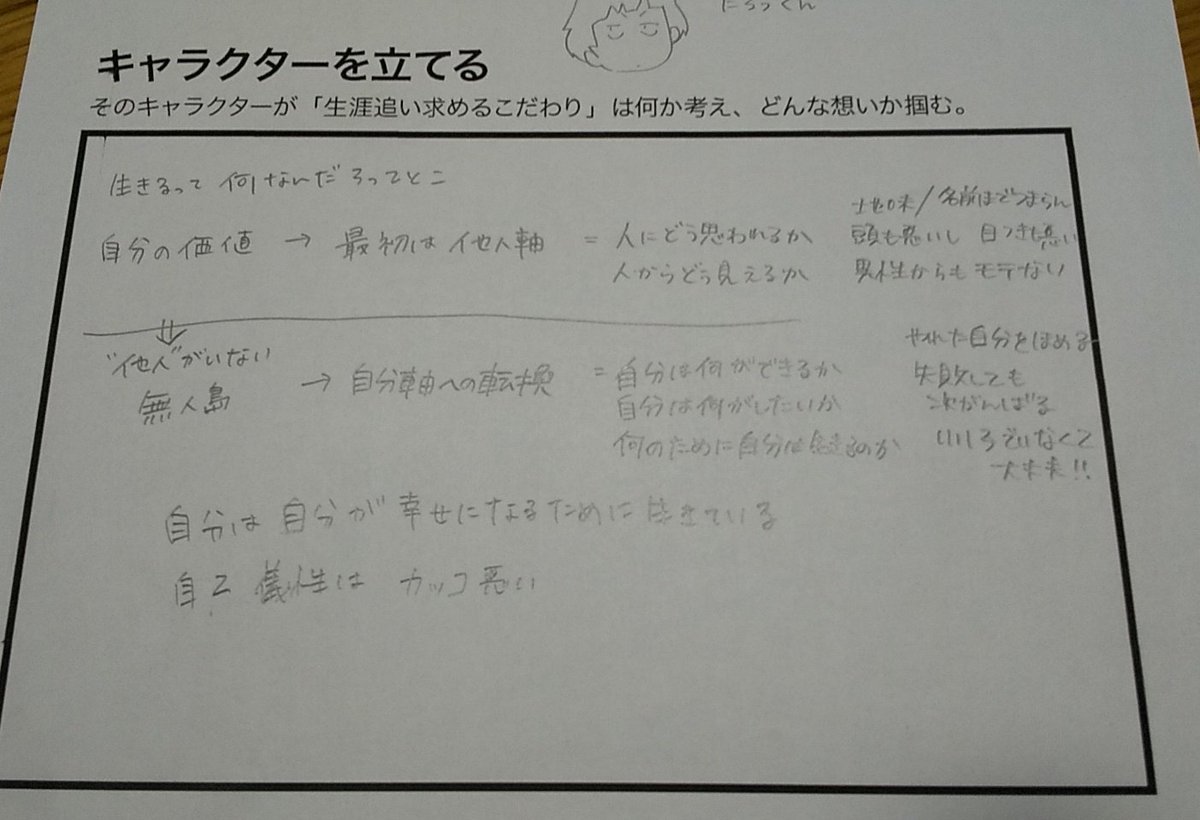 にろっくん
キャラクターを立てる
そのキャラクターが「生涯追い求めるこだわり」は何か考え、どんな想いか掴む。
生きるって 何なんだろってとこ
自分の価値 → 最初は 他人軸 = 人にどう思われるか
人からどう見えるか
地味/名前までつまらん
頭も悪いし 目つきも悪い
男性からもモテない
⇓
"他人"がいない
無人島 → 自分軸への転換 = 自分は何ができるか
自分は何がしたいか
何のために自分は生きるのか
やれた自分をほめる
失敗しても
次がんばる
いいろでいなくて
大丈夫!!
自分は 自分が 幸せになるために 生きている
自己 犠性は カッコ悪い